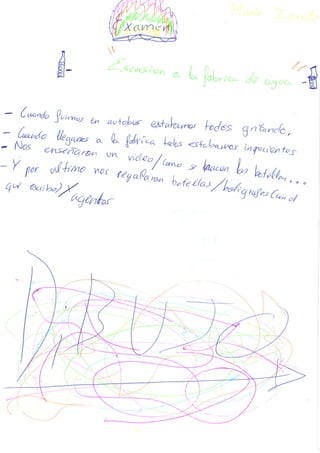 Maria
Examen
Excursion a la fabrica de agua
- Cuando fuimos en autobus estabamos todos gritando.
- Cuando llegamos a la fabrica todos estabamos inpacientes
- Nos enseñaron un video/como se hacen las botellas...
- Y por ultimo nos regalaron botellas/boligrafos (con el
que escribo) y agendas
DIBUJO